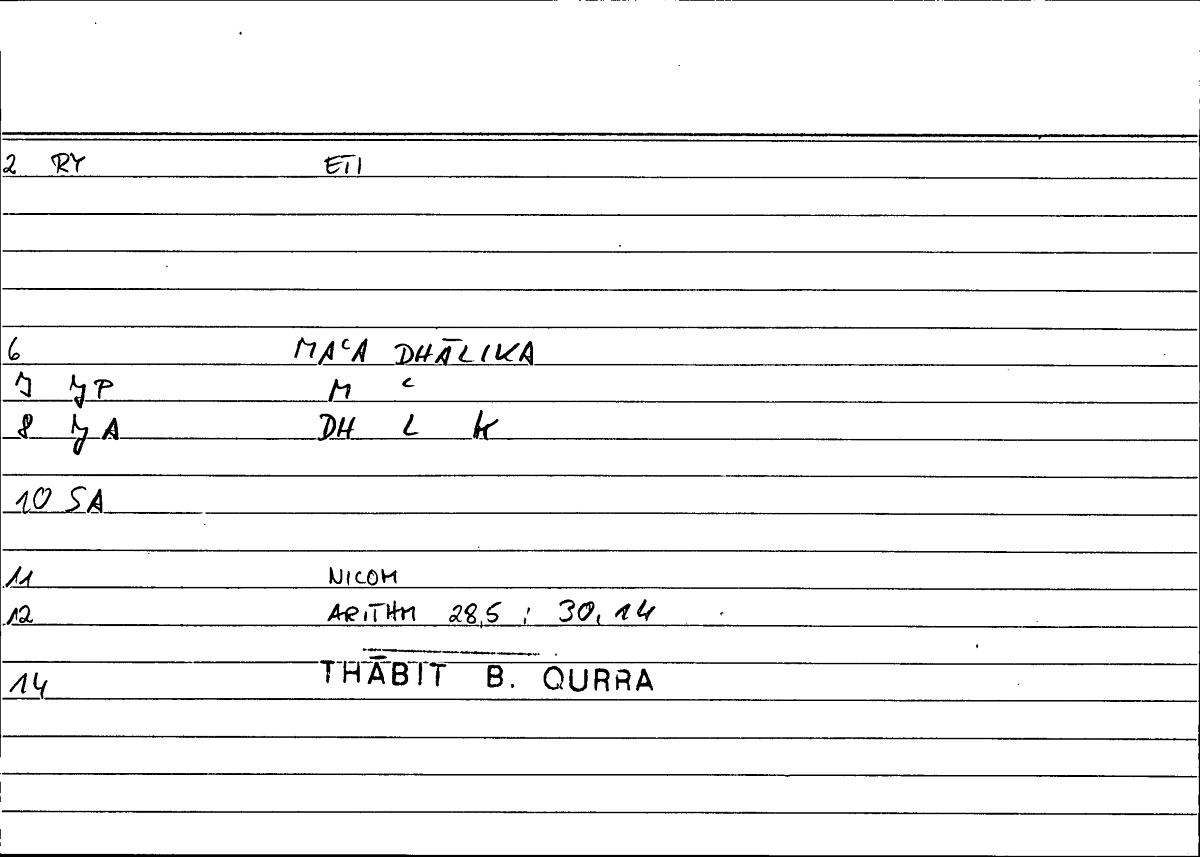 2 RY ETI
6 MAᶜA DHĀLIKA
7 JP M ᶜ
8 JA DH L K
10 SA
11 NICOM
12 ARITHM 28,5 ; 30,14
14 THĀBIT B. QURRA